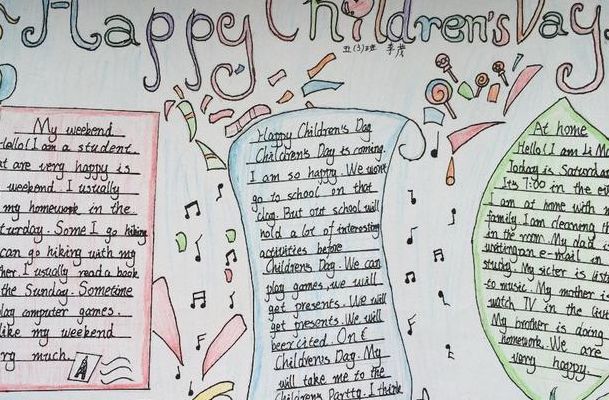 Happy Children's Day
五(3)班 李茂
My weekend
Hello! I am a student.
at are very happy is
weekend. I usually
my homework in the
turday. Some I go hiking
can go hiking with my
her. I usually read a book
the Sunday. Sometime
play computer games.
like my weekend
ry much.
Happy Children's Day
Children's Day is coming.
I am so happy. We wont
go to school on that
day. But our school will
hold a lot of interesting
activities before
Children's Day. We can
play games, we will
get presents. We will
get presents. We will
beer cited. On
Children's Day. My
will take me to the
Children's Partty. I think
At home
Hello! I am Li M
Today is Saturda
It's 7:00 in the e
I am at home with
family. I am cleaning t
in the room. My dad
writing an e-mail in
study. My sister is list
to music. My mother i
watch TV in the livi
My brother is doing
homework. We are
very happy.